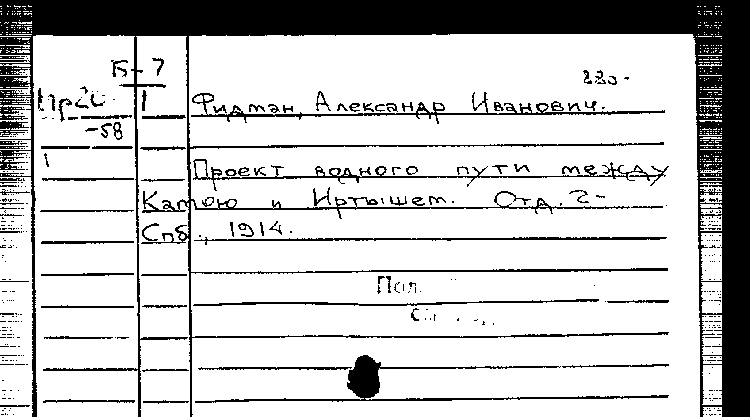 Б-7
220-
Пр2С 1 Фидман, Александр Иванович.
-58
1
Проект водного пути между
Камою и Иртышем. Отд. 2-
Спб., 1914.